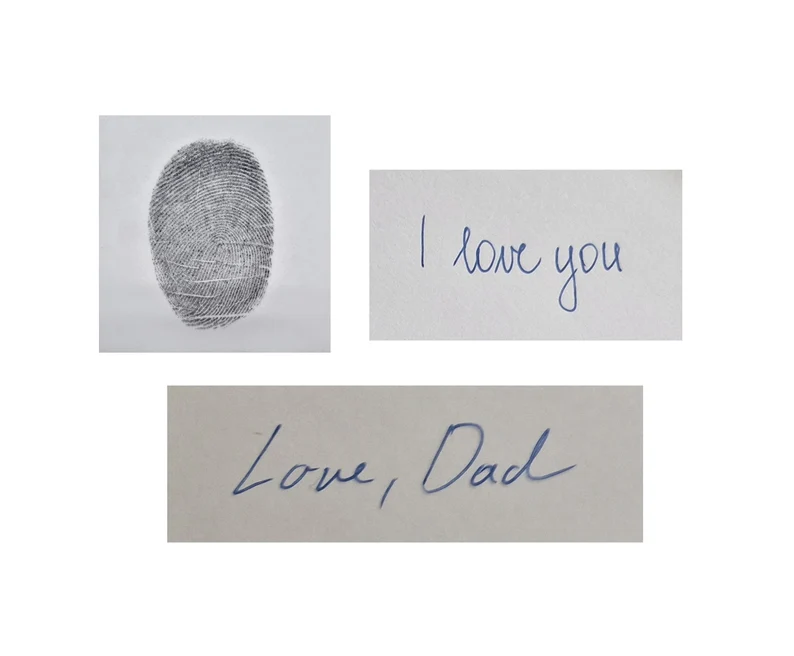 I love you
Love, Dad